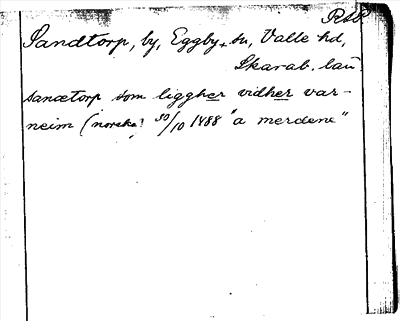 RAP
Sandtorp, by, Eggby sn, Valle hd,
Skarab. län.
sanætorp som liggher vidher var-
neim (norska? 30/10 1488 "a merdene"